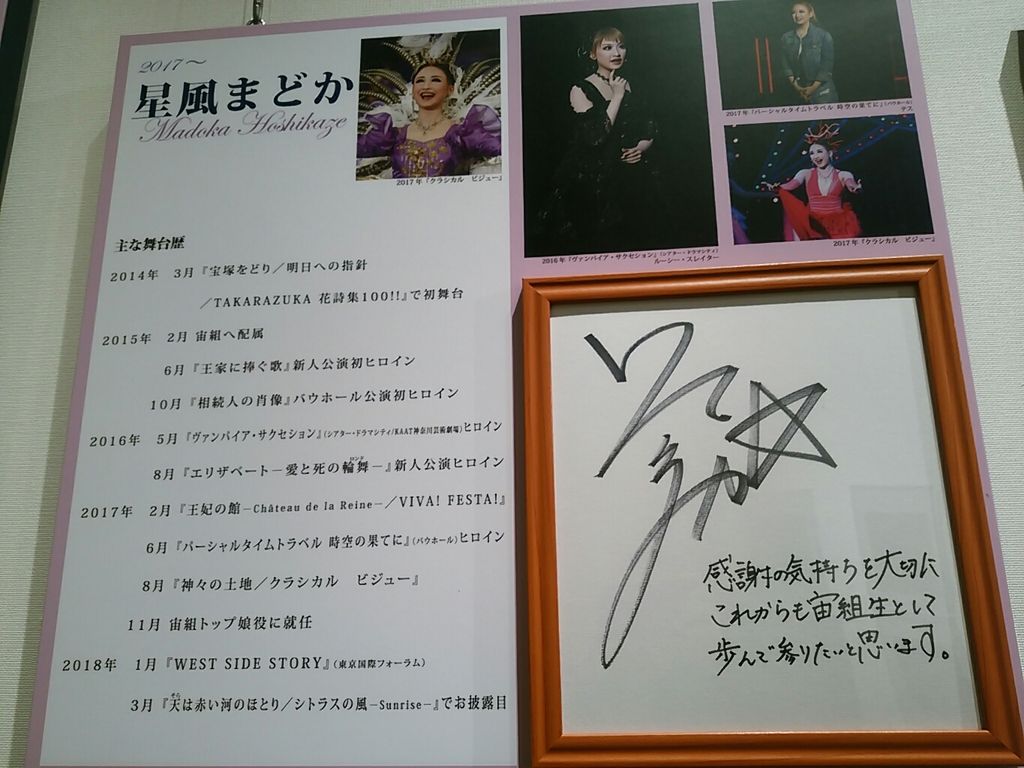 2017〜
星風まどか
Madoka Hoshikaze
2017年『クラシカル ビジュー』
主な舞台歴
2014年 3月『宝塚をどり／明日への指針
／TAKARAZUKA 花詩集100!!』で初舞台
2015年 2月 宙組へ配属
6月『王家に捧ぐ歌』新人公演初ヒロイン
10月『相続人の肖像』バウホール公演初ヒロイン
2016年 5月『ヴァンパイア・サクセション』(シアター・ドラマシティ/KAAT神奈川芸術劇場)ヒロイン
8月『エリザベート－愛と死の輪舞－』新人公演ヒロイン
ロンド
2017年 2月『王妃の館－Château de la Reine－／VIVA! FESTA!』
6月『パーシャルタイムトラベル 時空の果てに』(バウホール)ヒロイン
8月『神々の土地／クラシカル ビジュー』
11月 宙組トップ娘役に就任
2018年 1月『WEST SIDE STORY』(東京国際フォーラム)
3月『天は赤い河のほとり／シトラスの風－Sunrise－』でお披露目
そら
2016年『ヴァンパイア・サクセション』(シアター・ドラマシティ)
ルーシー・スレイター
2017年『パーシャルタイムトラベル 時空の果てに』(バウホール)
テス
2017年『クラシカル ビジュー』
感謝の気持ちを大切に
これからも宙組生として
歩んで参りたいと思います。